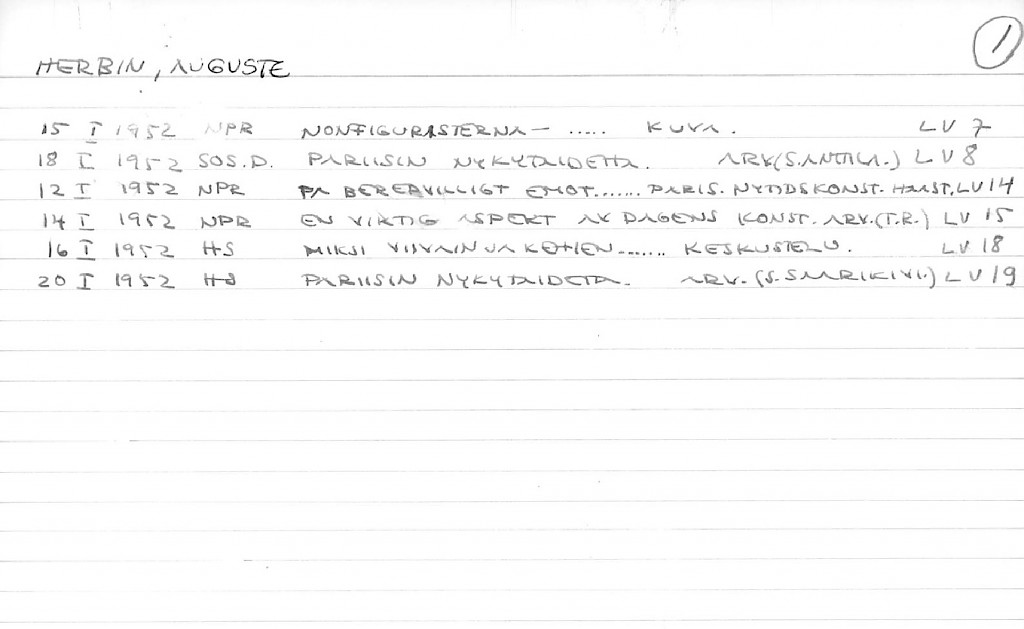 1
HERBIN, AUGUSTE
15 I 1952 NPR NONFIGURASTERNA- ..... KUVA. LV 7
18 I 1952 SOS.D. PARIISIN NYKYTAIDETTA. ARV(S.ANTTILA.) LV 8
12 I 1952 NPR PÅ BEREDVILLIGT EMOT...... PARIS. NYTIDSKONST. HAAST. LV 14
14 I 1952 NPR EN VIKTIG ASPEKT AV DAGENS KONST. ARV.(T.R.) LV 15
16 I 1952 HS MIKSI VIIVAIN JA KEHIEN....... KESKUSTELU. LV 18
20 I 1952 HS PARIISIN NYKYTAIDETTA. ARV. (S.SAARIKIVI.) LV 19